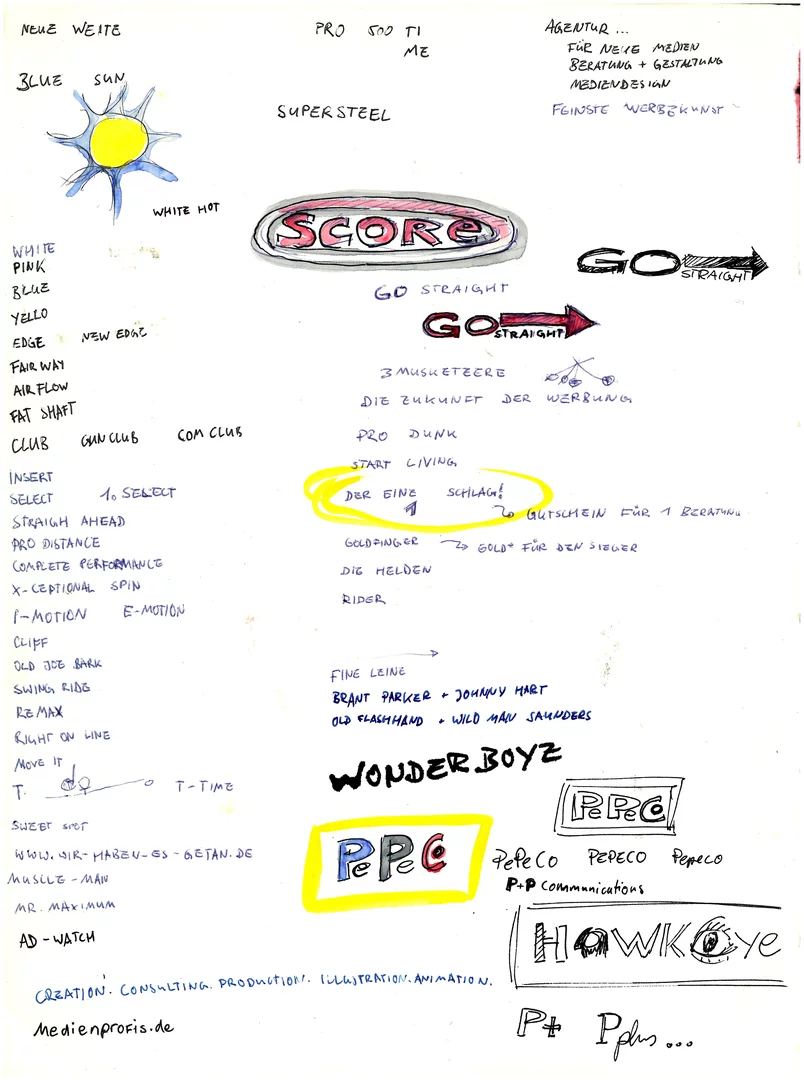 NEUE WEITE
BLUE SUN
WHITE HOT
WHITE
PINK
BLUE
YELLO
EDGE NEW EDGE
FAIR WAY
AIR FLOW
FAT SHAFT
CLUB GUN CLUB COM CLUB
INSERT
SELECT 1. SELECT
STRAIGH AHEAD
PRO DISTANCE
COMPLETE PERFORMANCE
X-CEPTIONAL SPIN
I-MOTION E-MOTION
CLIFF
OLD JOE BARK
SWING RIDE
REMAX
RIGHT ON LINE
MOVE IT
T. T-TIME
SWEET SPOT
WWW.WIR-HABEN-ES-GETAN.DE
MUSCLE-MAN
MR. MAXIMUM
AD-WATCH
CREATION. CONSULTING. PRODUCTION. ILLUSTRATION. ANIMATION.
Medienprofis.de
PRO 500 TI
ME
SUPERSTEEL
SCORE
GO STRAIGHT
GO STRAIGHT
3 MUSKETEERE
DIE ZUKUNFT DER WERBUNG
PRO DUNK
START LIVING
DER EINE SCHLAG!
1
GUTSCHEIN FÜR 1 BERATUNG
GOLDFINGER GOLD FÜR DEN SIEGER
DIE HELDEN
RIDER
FINE LEINE
BRANT PARKER + JOHNNY HART
OLD FLASHHAND + WILD MAN SAUNDERS
WONDERBOYZ
PePeCo
AGENTUR ...
FÜR NEUE MEDIEN
BERATUNG + GESTALTUNG
MEDIENDESIGN
FEINSTE WERBEKUNST
GO STRAIGHT
PePeCo
PePeCo PEPECO Pepeco
P+P Communications
HawkEye
P+ Pplus...